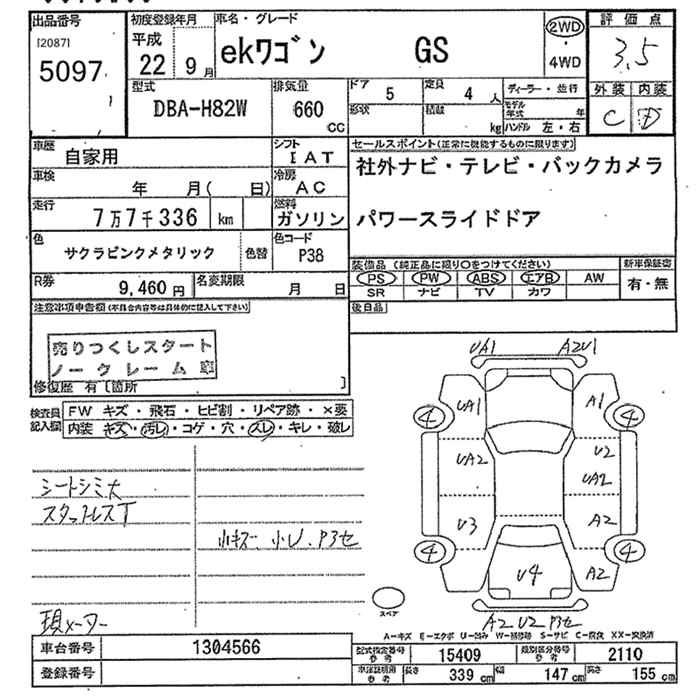 出品番号
[2087]
5097
初度登録年月
平成
22 9月
車名・グレード
ekワゴン GS
2WD
・
4WD
評価点
3.5
外装 内装
C D
型式
DBA-H82W
排気量
660
CC
ドア
5
定員
4人
形状
積載
kg
ディーラー・並行
モデル年式 年
ハンドル 左・右
車歴
自家用
シフト
IAT
車検
年 月( 日)
冷房
AC
走行
7万7千336 km
燃料
ガソリン
色
サクラピンクメタリック
色替
色コード
P38
R券
9,460円
名変期限
月 日
セールスポイント(正常に機能するものに限ります)
社外ナビ・テレビ・バックカメラ
パワースライドドア
装備品(純正品に限り〇をつけてください)
PS PW ABS エアB AW
SR ナビ TV カワ
新車保証書
有・無
後日品
注意事項申告欄(不具合内容等は具体的に記入して下さい)
売りつくしスタート
ノークレーム
修復歴 有[箇所 ]
検査員
記入欄
FW キズ・飛石・ヒビ割・リペア跡・×要
内装 キズ・汚レ・コゲ・穴・スレ・キレ・破レ
シートシミ大
スタットレスT
小キズ、小U、Pヨセ
現メーター
UA1 A2U1
UA1 A1
4 4
UA2 U2
UA2
U3 A2
4 4
U4 A2
A2 U2 Pヨセ
スペア
A-キズ E-エクボ U-凹み W-補修跡 S-サビ C-腐食 XX-交換済
車台番号
1304566
登録番号
型式指定番号
参考
15409
類別区分番号
参考
2110
車検証明用
参考
長さ 339cm 幅 147cm 高さ 155cm